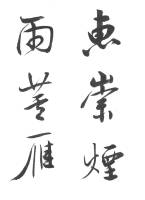 惠崇煙
雨蘆雁